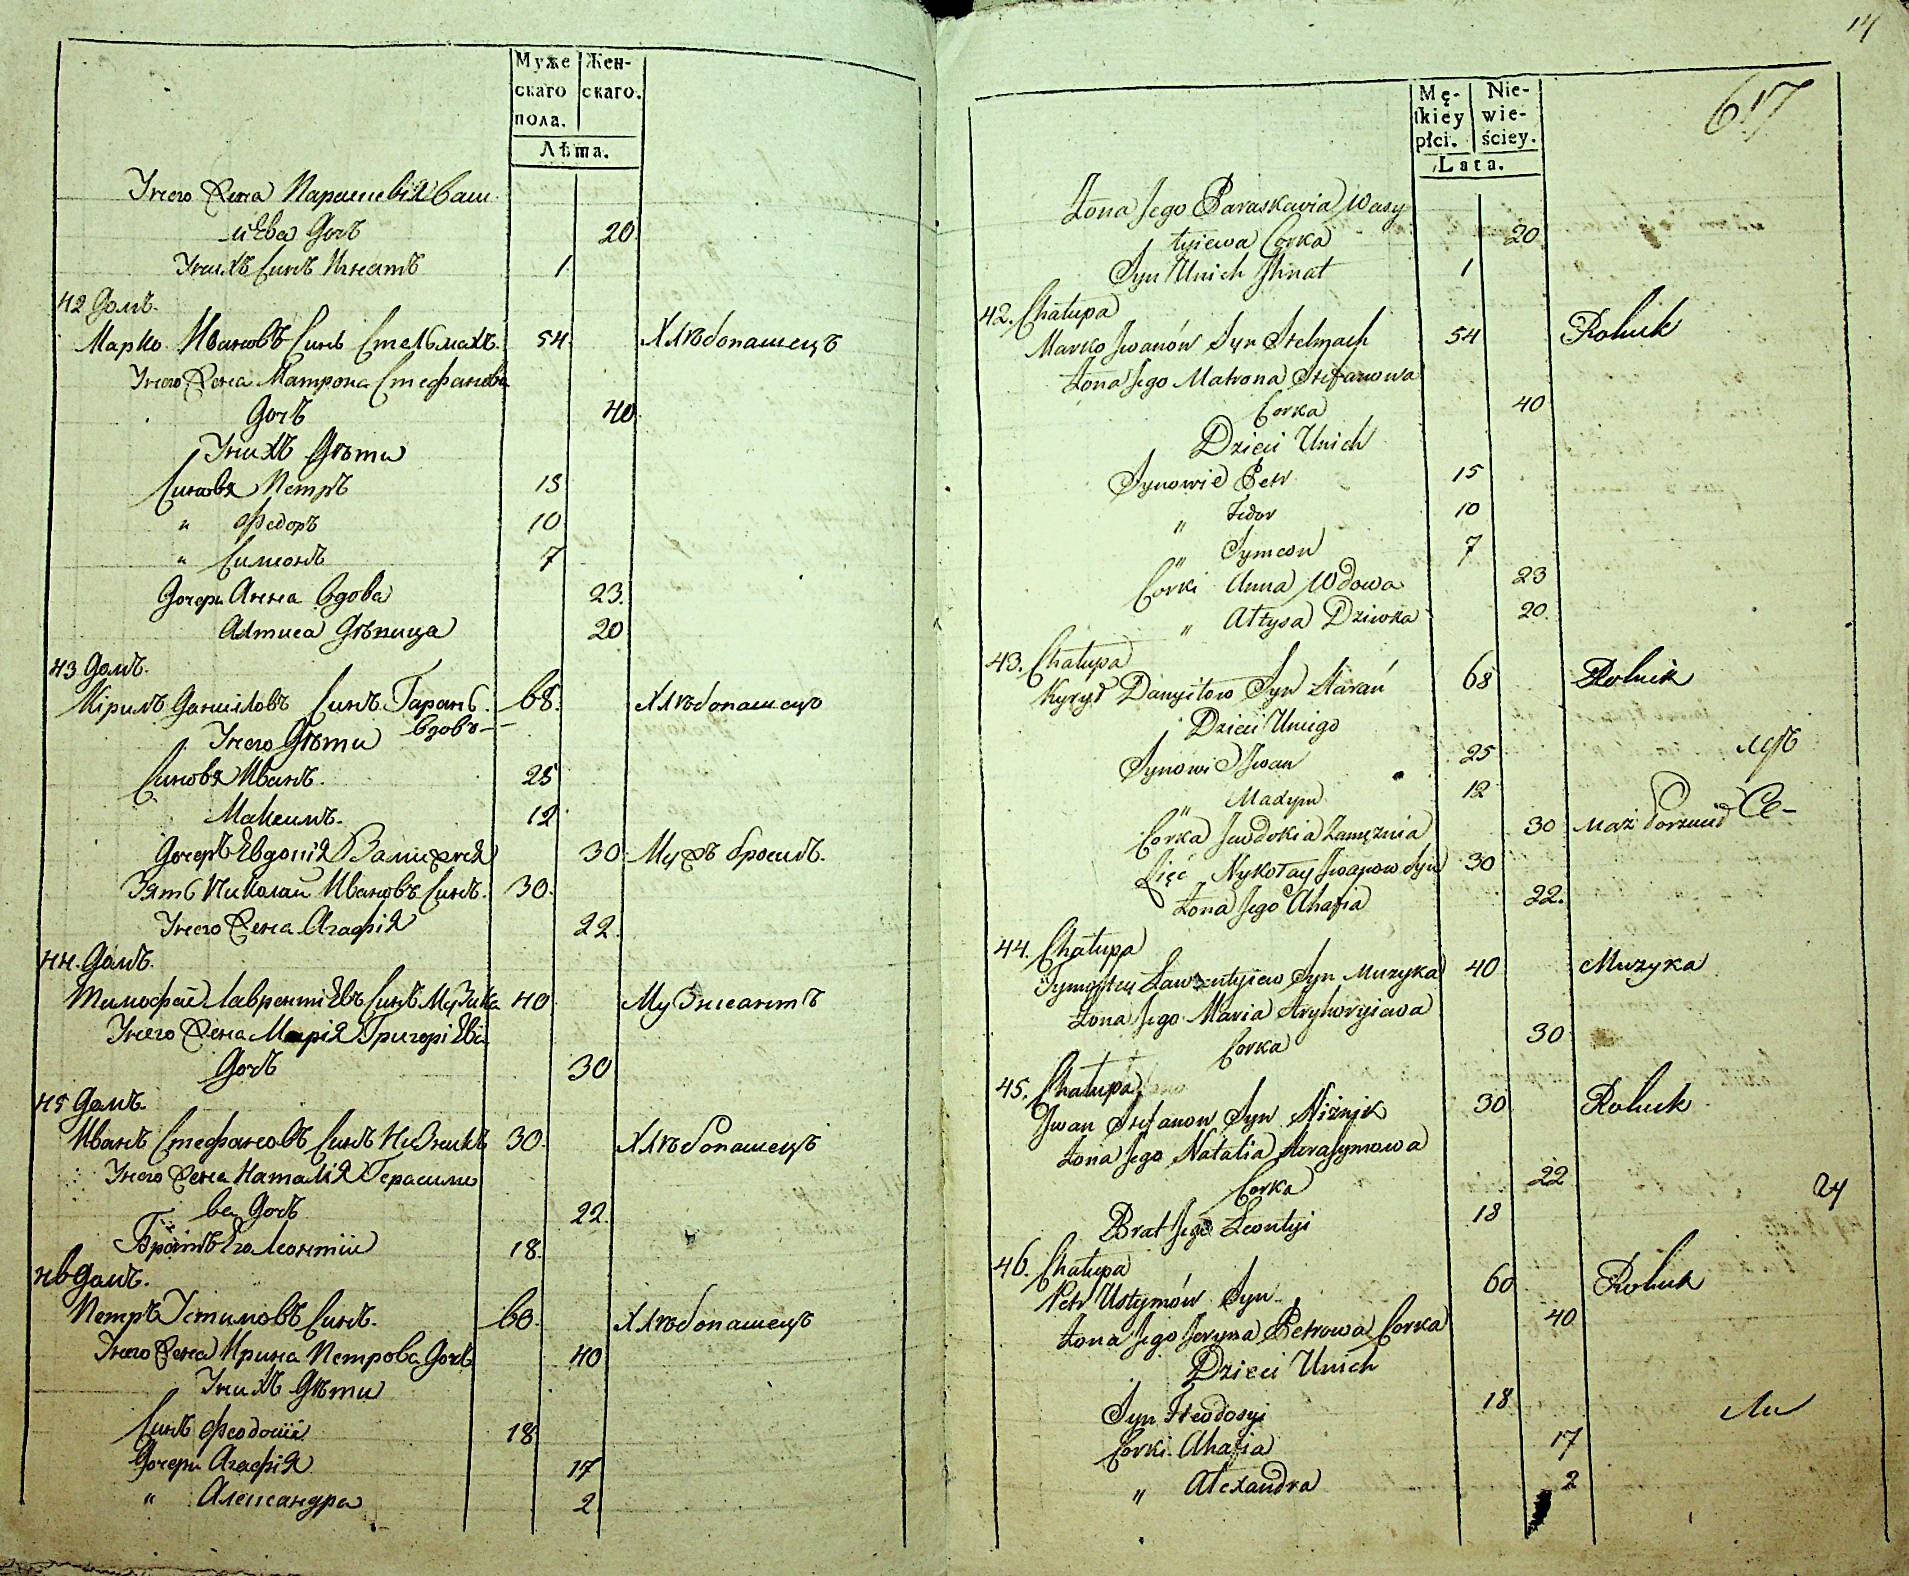 Муже Жен-
скаго скаго.
пола.
Лѣта.
Унего Жена Параскевія Васи
лiева Дочь 20
Унихъ Синъ Игнатъ 1
42 Домъ.
Марко Ивановъ Синъ Стельмахъ. 54 Хлѣбопашецъ
Унего Жена Матрона Стефанова
Дочь 40
Унихъ Дѣти
Синовя Петръ 15
" Федоръ 10
" Симеонъ 7
Дочери Анна Вдова 23.
Алтиса Дѣвица 20
43 Домъ.
Кірилъ Даниловъ Синъ Гарань. 68. Хлѣбопашецъ
вдовъ
Унего Дѣти
Синовя Иванъ. 25
Максимъ. 12
Дочерь Евдокія Замужня 30 Мужъ бросилъ.
Зять Николай Ивановъ Синъ. 30.
Унего Жена Агафія 22.
44. Домъ.
Тимофей Лаврентіевъ Синъ Музика 40 Музикантъ
Унего Жена Марія Григоріева
Дочь 30
45 Домъ.
Иванъ Стефановъ Синъ Низникъ 30. Хлѣбопашецъ
Унего Жена Наталія Герасимо
ва Дочь 22.
Братъ Его Леонтій 18.
46 Домъ.
Петръ Устимовъ Синъ. 60. Хлѣбопашецъ
Унего Жена Ирина Петрова Дочь 40
Унихъ Дѣти
Синъ Феодосій 18
Дочери Агафія 17
" Александра 2
14
617
Mę- Nie-
ſkiey wie-
płci. ściey.
Lata.
Żona Jego Paraskawia Wasy
łyiewa Corka 20
Syn Unich Ihnat 1
42. Chałupa
Marko Iwanów Syn Stelmach 54 Rolnik
Żona Jego Matrona Stefanowa
Corka 40
Dzieci Unich
Synowie Petr 15
" Fedor 10
" Symeon 7
Corki Anna Wdowa 23
" Ałtysa Dziwka 20.
43. Chałupa
Kyrył Danyłow Syn Harań 68 Rolnik
Dzieci Uniego
Synowi Iwan 25
" Maxym 12
Corka Jewdokia Zamężnia 30 Mąż Porzucił
Zięć Nykołay Iwanow Syn 30
Żona Jego Ahafia 22.
44. Chałupa
Tymoftey Ławrentyiew Syn Muzyka 40 Muzyka
Żona Jego Maria Hryhoryiewa
Corka 30
45. Chałupa
Iwan Stefanow Syn Niżnik 30 Rolnik
Żona Jego Natalia Herasymowa
Corka 22
Brat Jego Leontyi 18
46. Chałupa
Petr Ustymów Syn 60 Rolnik
Żona Jego Jeryna Petrowa Corka 40
Dzieci Unich
Syn Fteodosyi 18
Corki Ahafia 17
" Alexandra 2